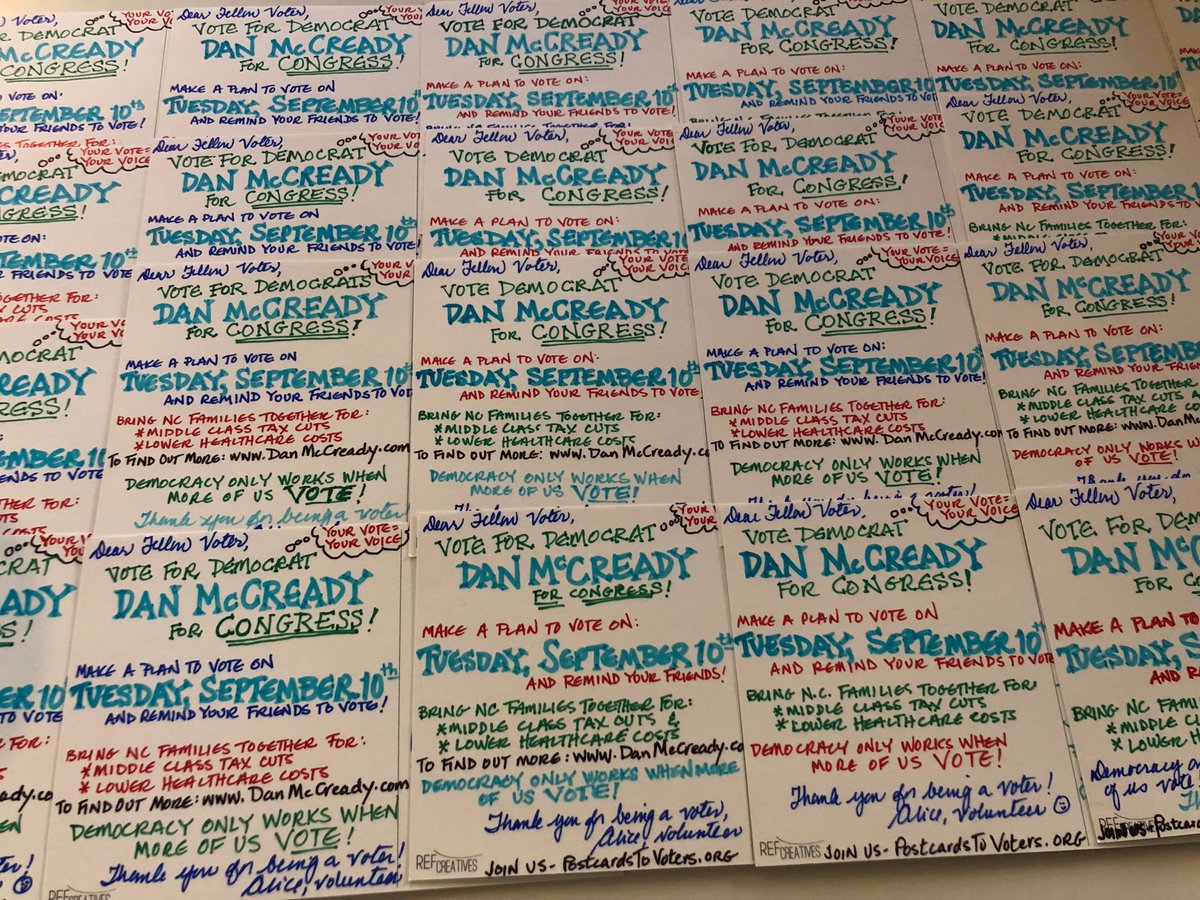 Voter,
YOUR VOTE=
YOUR VOICE
DEMOCRAT
CREADY
CONGRESS!
TO VOTE ON:
SEPTEMBER 10th
YOUR FRIENDS TO VOTE!
FAMILIES TOGETHER FOR:
Dear Fellow Voter,
VOTE FOR DEMOCRAT
DAN McCREADY
FOR CONGRESS!
MAKE A PLAN TO VOTE ON
TUESDAY, SEPTEMBER 10th
AND REMIND YOUR FRIENDS TO VOTE!
Dear Fellow Voter,
VOTE FOR DEMOCRAT
DAN McCREADY
FOR CONGRESS!
MAKE A PLAN TO VOTE ON:
TUESDAY, SEPTEMBER 10th
AND REMIND YOUR FRIENDS TO VOTE!
VOTE FOR DEMOCRAT
DAN McCREADY
FOR CONGRESS!
MAKE A PLAN TO VOTE ON:
TUESDAY, SEPTEMBER 10th
AND REMIND YOUR FRIENDS TO VOTE!
VOTE FOR DEMOCRAT
DAN McCREADY
FOR CONGRESS!
MAKE A PLAN TO VOTE ON:
TUESDAY, SEPTEMBER
YOUR VOTE=
YOUR VOICE
DEMOCRAT
CREADY
CONGRESS!
TO VOTE ON:
SEPTEMBER 10th
YOUR FRIENDS TO VOTE
TOGETHER FOR:
TAX CUTS
Dear Fellow Voter,
YOUR VOTE=
YOUR VOICE
VOTE FOR DEMOCRAT
DAN McCREADY
FOR CONGRESS!
MAKE A PLAN TO VOTE ON
TUESDAY, SEPTEMBER 10th
AND REMIND YOUR FRIENDS TO VOTE!
Dear Fellow Voter,
YOUR VOTE
YOUR VOICE
VOTE DEMOCRAT
DAN McCREADY
FOR CONGRESS!
MAKE A PLAN TO VOTE ON:
TUESDAY, SEPTEMBER 10
AND REMIND YOUR FRIENDS TO VOTE!
Dear Fellow Voter,
YOUR VOTE
YOUR VOICE
VOTE FOR DEMOCRAT
DAN McCREADY
FOR, CONGRESS!
MAKE A PLAN TO VOTE ON:
TUESDAY, SEPTEMBER 10th
AND REMIND YOUR FRIENDS TO VOTE!
Dear Fellow Voter,
YOUR VOTE
YOUR VOICE
VOTE FOR DEMOCRAT
DAN McCREADY
FOR CONGRESS!
TUESDAY, SEPTEMBER
AND REMIND YOUR FRIENDS TO
BRING NC FAMILIES TOGETHER FOR:
YOUR VO
YOUR VO
DEMOCRAT
CREADY
CONGRESS!
TO VOTE ON:
SEPTEMBER 10
YOUR FRIENDS TO VOTE
TOGETHER FOR:
CUTS
Dear Fellow Voter,
YOUR V
YOUR VOIC
VOTE FOR DEMOCRATS
DAN McCREADY
FOR CONGRESS!
MAKE A PLAN TO VOTE ON
TUESDAY, SEPTEMBER 10th
AND REMIND YOUR FRIENDS TO VOTE!
BRING NC FAMILIES TOGETHER FOR:
*MIDDLE CLASS TAX CUTS
*LOWER HEALTHCARE COSTS
TO FIND OUT MORE: WWW.DanMcCready.com
DEMOCRACY ONLY WORKS WHEN
MORE OF US VOTE!
Thank you for being a voter!
Dear Fellow Voter,
YOUR VOTE
YOUR VOICE
VOTE DEMOCRAT
DAN McCREADY
FOR CONGRESS!
MAKE A PLAN TO VOTE ON:
TUESDAY, SEPTEMBER 10th
AND REMIND YOUR FRIENDS TO VOTE.
BRING NC FAMILIES TOGETHER FOR:
*MIDDLE CLASS TAX CUTS
*LOWER HEALTHCARE COSTS
TO FIND OUT MORE: WWW.DanMcCready.co
DEMOCRACY ONLY WORKS WHEN
MORE OF US VOTE!
Dear Fellow Voter,
YOUR VOTE=
YOUR VOICE
VOTE FOR DEMOCRAT
DAN McCREADY
FOR CONGRESS!
MAKE A PLAN TO VOTE ON:
TUESDAY, SEPTEMBER 10th
AND REMIND YOUR FRIENDS TO VOTE!
BRING NC FAMILIES TOGETHER FOR:
*MIDDLE CLASS TAX CUTS
*LOWER HEALTHCARE COSTS
TO FIND OUT MORE: WWW.DanMcCready.com
DEMOCRACY ONLY WORKS WHEN
MORE OF US VOTE!
Thank you for being a voter!
Dear Fellow Voter,
VOTE FOR DEMOCRAT
DAN McCREADY
FOR CONGRESS!
MAKE A PLAN TO VOTE ON:
TUESDAY, SEPTEMBER
AND REMIND YOUR FRIENDS TO
BRING NC FAMILIES TOGETHER
*MIDDLE CLASS TAX CUTS
*LOWER HEALTHCARE COSTS
TO FIND OUT MORE: WWW.DanMc
DEMOCRACY ONLY WORKS
OF US VOTE!
YOUR VO
YOU
CRAT
EADY
BER 10
TO VOTE
FOR:
ready.co
Dear Fellow Voter,
YOUR VOTE=
YOUR VOICE
VOTE FOR DEMOCRAT
DAN McCREADY
FOR CONGRESS!
MAKE A PLAN TO VOTE ON
TUESDAY, SEPTEMBER 10th
AND REMIND YOUR FRIENDS TO VOTE!
BRING NC FAMILIES TOGETHER FOR:
*MIDDLE CLASS TAX CUTS
*LOWER HEALTHCARE COSTS
TO FIND OUT MORE: WWW.DanMcCready.com
DEMOCRACY ONLY WORKS WHEN
MORE OF US VOTE!
Thank you for being a voter!
Alice, volunteer
REFCREATIVES
Dear Fellow Voter,
YOUR V
YOUR
VOTE FOR DEMOCRAT
DAN McCREADY
FOR CONGRESS!
MAKE A PLAN TO VOTE ON:
TUESDAY, SEPTEMBER 10th
AND REMIND YOUR FRIENDS!
BRING NC FAMILIES TOGETHER FOR:
*MIDDLE CLASS TAX CUTS &
*LOWER HEALTHCARE COSTS
TO FIND OUT MORE: WWW.DanMcCready.co
DEMOCRACY ONLY WORKS WHEN MORE
OF US VOTE!
Thank you for being a voter,
Alice, volunteer
REFCREATIVES
JOIN US - POSTCARDSTOVOTERS.ORG
Dear Fellow Voter,
YOUR VOTE=
YOUR VOICE
VOTE FOR DEMOCRAT
DAN McCREADY
FOR CONGRESS!
MAKE A PLAN TO VOTE ON
TUESDAY, SEPTEMBER 10th
AND REMIND YOUR FRIENDS TO VOTE
BRING N.C. FAMILIES TOGETHER FOR:
*MIDDLE CLASS TAX CUTS
*LOWER HEALTHCARE COSTS
DEMOCRACY ONLY WORKS WHEN
MORE OF US VOTE!
Thank you for being a voter!
Alice, volunteer
REFCREATIVES
JOIN US - POSTCARDSTOVOTERS.ORG
Dear Fellow Voter,
VOTE FOR DEM
DAN McC
FOR CO
MAKE A PLAN TO
TUESDAY, SE
AND RE
BRING NC FAMI
*MIDDLE C
*LOWER HE
Democracy on
of us vote
JOIN US - Postcard